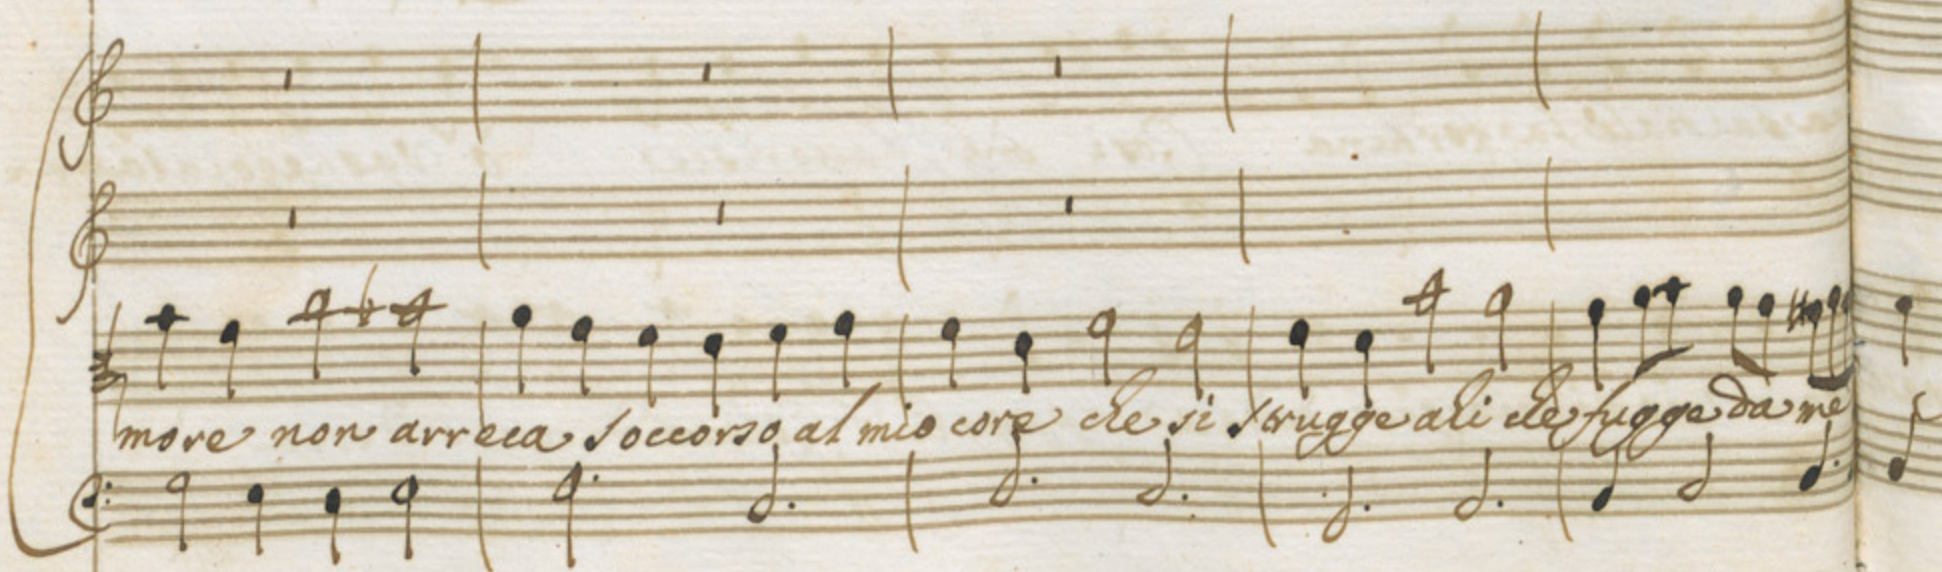 more non arreca soccorso al mio core che si strugge ahi che fugge da me